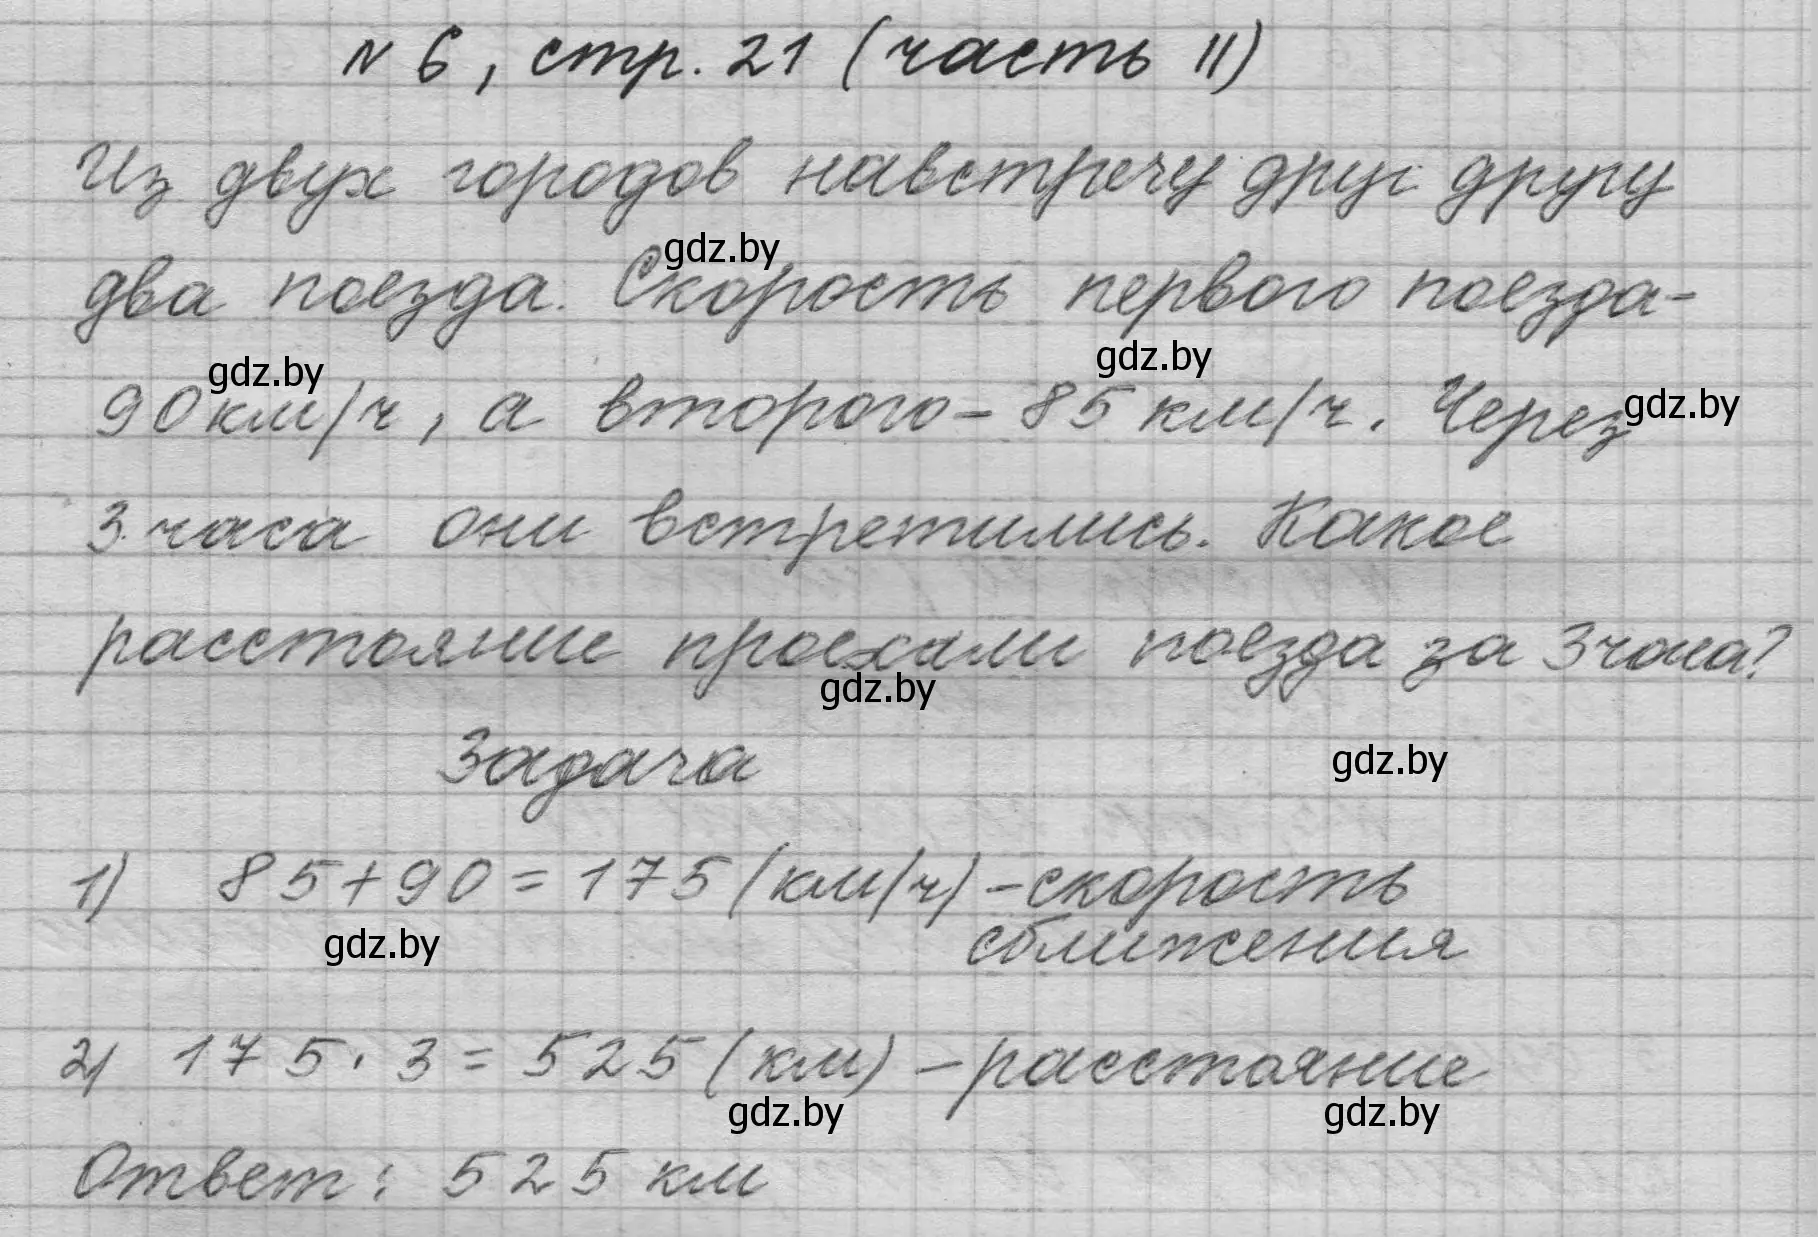 № 6, стр. 21 (часть II)
Из двух городов навстречу друг другу
gdz.by
два поезда. Скорость первого поезда-
gdz.by
gdz.by
gdz.by
90 км/ч, а второго – 85 км/ч. Через
3 часа они встретились. Какое
расстояние проехали поезда за 3 часа?
gdz.by
Задача
gdz.by
1) 85+90=175 (км/ч) – скорость
сближения
gdz.by
2) 175 · 3 = 525 (км) – расстояние
gdz.by
gdz.by
Ответ: 525 км